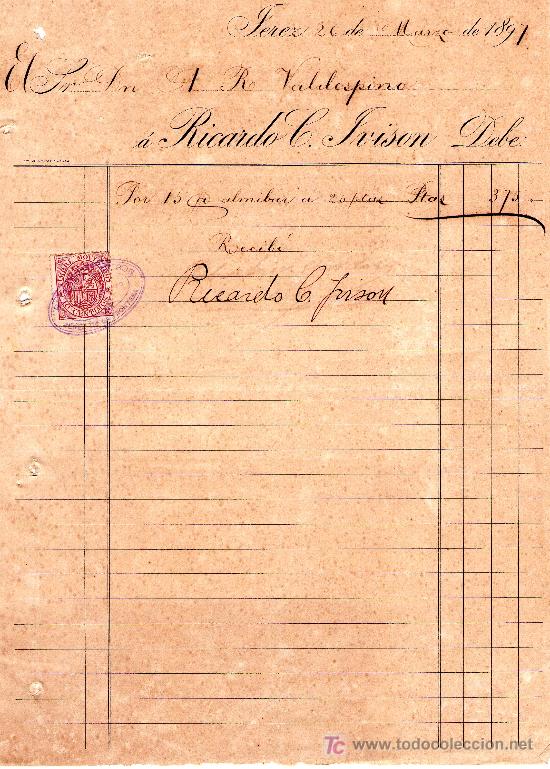 Jerez 26 de Marzo de 1897
El Sr Dn A R Valdespino
á Ricardo C. Ivison Debe
Por 15 @ almibar a 25 ptas Ptas 375 -
Recibí
Ricardo C. Ivison
TC www.todocoleccion.net